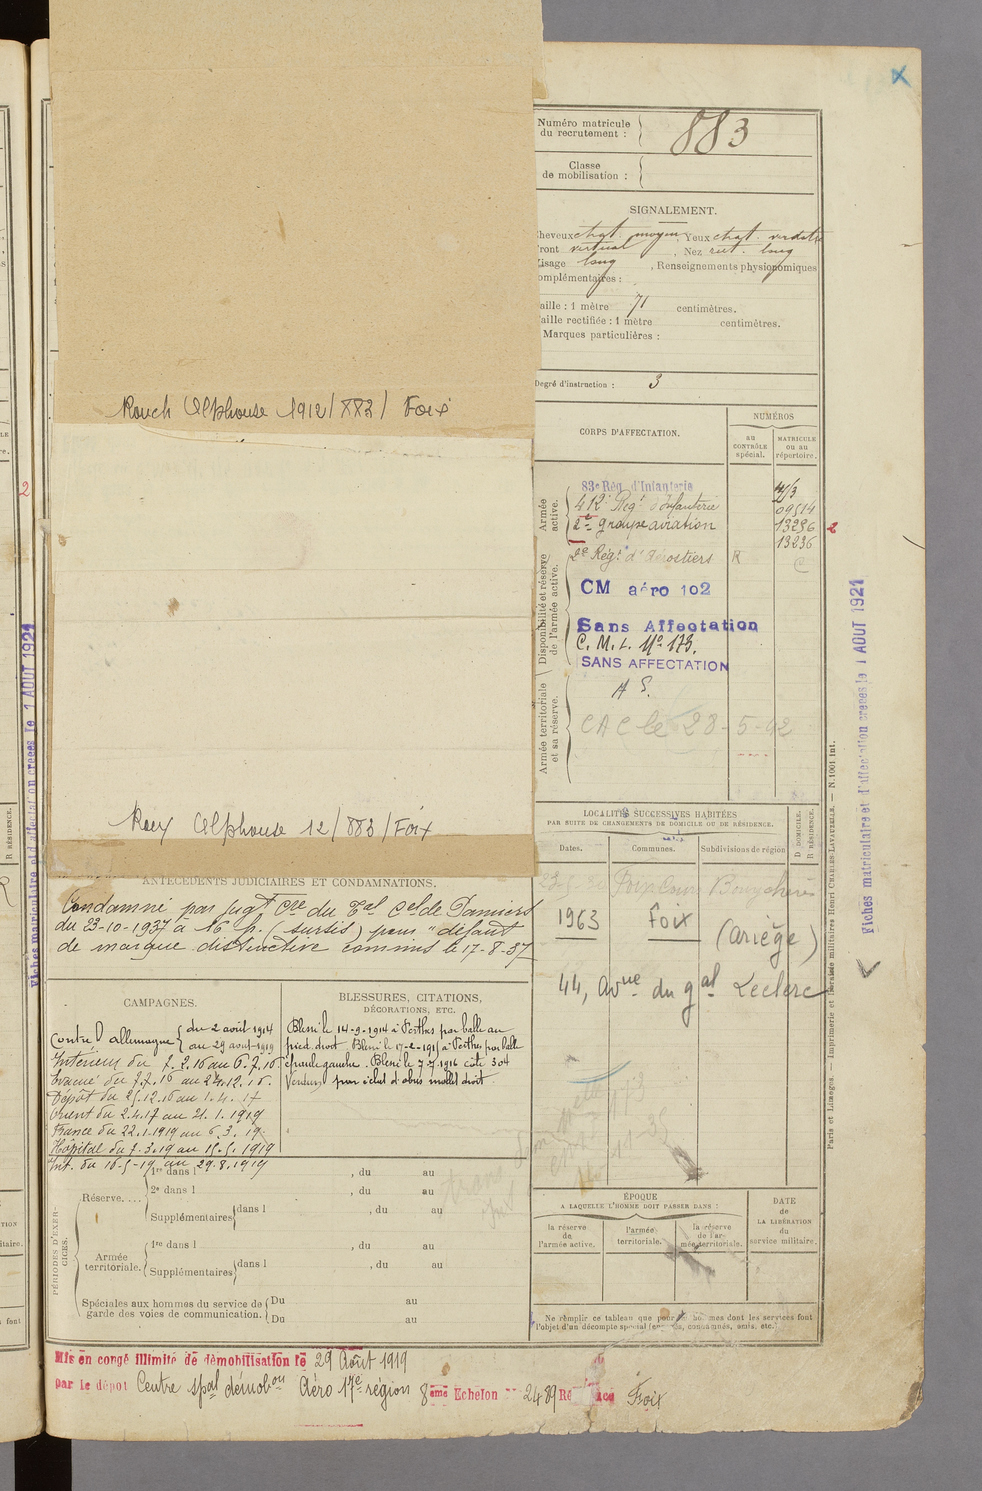 Numéro matricule
du recrutement :
883
Classe
de mobilisation :
SIGNALEMENT.
heveux chat. moyen, Yeux chat. verdatre
ront vertical, Nez rect. long
isage long, Renseignements physionomiques
omplémentaires :
aille : 1 mètre 71 centimètres.
aille rectifiée : 1 mètre centimètres.
Marques particulières :
Degré d'instruction : 3
Rouch Alphonse 1912/883/ Foix
CORPS D'AFFECTATION.
NUMÉROS
au
CONTRÔLE
spécial.
MATRICULE
ou au
répertoire.
Armée
active.
83e Rég. d'Infanterie
412e Regt d'Infanterie 09514
2e groupe aviation 13236
2
13236
Disponibilité et réserve
de l'armée active.
2e Régt d'Aérostiers R C
CM aéro 102
Sans Affectation
C. M. L. No 173.
SANS AFFECTATION
Armée territoriale
et sa réserve.
A S.
CAC le 23-5-42
Roux Alphonse 12/883/Foix
LOCALITÉS SUCCESSIVES HABITÉES
PAR SUITE DE CHANGEMENTS DE DOMICILE OU DE RÉSIDENCE.
Dates.
Communes.
Subdivisions de région
D DOMICILE.
R RÉSIDENCE.
1963 Foix (Ariège)
44, Avnue du gal Leclerc
ANTÉCÉDENTS JUDICIAIRES ET CONDAMNATIONS.
Condamné par Jugt Cre du Tal Cel de Pamiers
du 23-10-1937 à 16 f. (sursis) pour "défaut
de marque distinctive commis le 17-8-37
CAMPAGNES.
Contre l'allemagne { du 2 août 1914
au 29 août 1919
Intérieur du 7.2.16 au 6.7.16
Evacué du 7.7.16 au 24.12.16.
Dépôt du 25.12.16 au 1.4.17
Orient du 2.4.17 au 21.1.1919
France du 22.1.1919 au 6.3.19.
Hôpital du 7.3.19 au 15.5.1919
Int. du 16-5-19 au 29.8.1919
BLESSURES, CITATIONS,
DÉCORATIONS, ETC.
Blessé le 14-9-1914 à Perthes par balle au
pied droit. Blessé le 17-2-1915 à Perthes par balle
épaule gauche. Blessé le 7-7-1916 côte 304
Verdun par éclat d'obus mollet droit.
PÉRIODES D'EXER-
CICES.
Réserve....
1re dans l , du au
2e dans l , du au
Supplémentaires dans l , du au
Armée
territoriale.
1re dans l , du au
Supplémentaires dans l , du au
Spéciales aux hommes du service de
garde des voies de communication.
Du au
Du au
ÉPOQUE
A LAQUELLE L'HOMME DOIT PASSER DANS :
la réserve
de
l'armée active.
l'armée
territoriale.
la réserve
de l'ar-
mée territoriale.
DATE
de
LA LIBÉRATION
du
service militaire.
Ne remplir ce tableau que pour les hommes dont les services font
l'objet d'un décompte spécial
Mis en congé illimité de démobilisation le 29 Août 1919
par le dépôt Centre spal démobon Aéro 17e région 8ème Echelon 2489 Foix
Fiches matriculaire et d'affectation creees le 1 AOUT 1921
Fiches matriculaire et d'affectation creees le 1 AOUT 1921
Paris et Limoges. — Imprimerie et librairie militaires Henri CHARLES-LAVAUZELLE. — N. 1001 int.
2
R RÉSIDENCE.